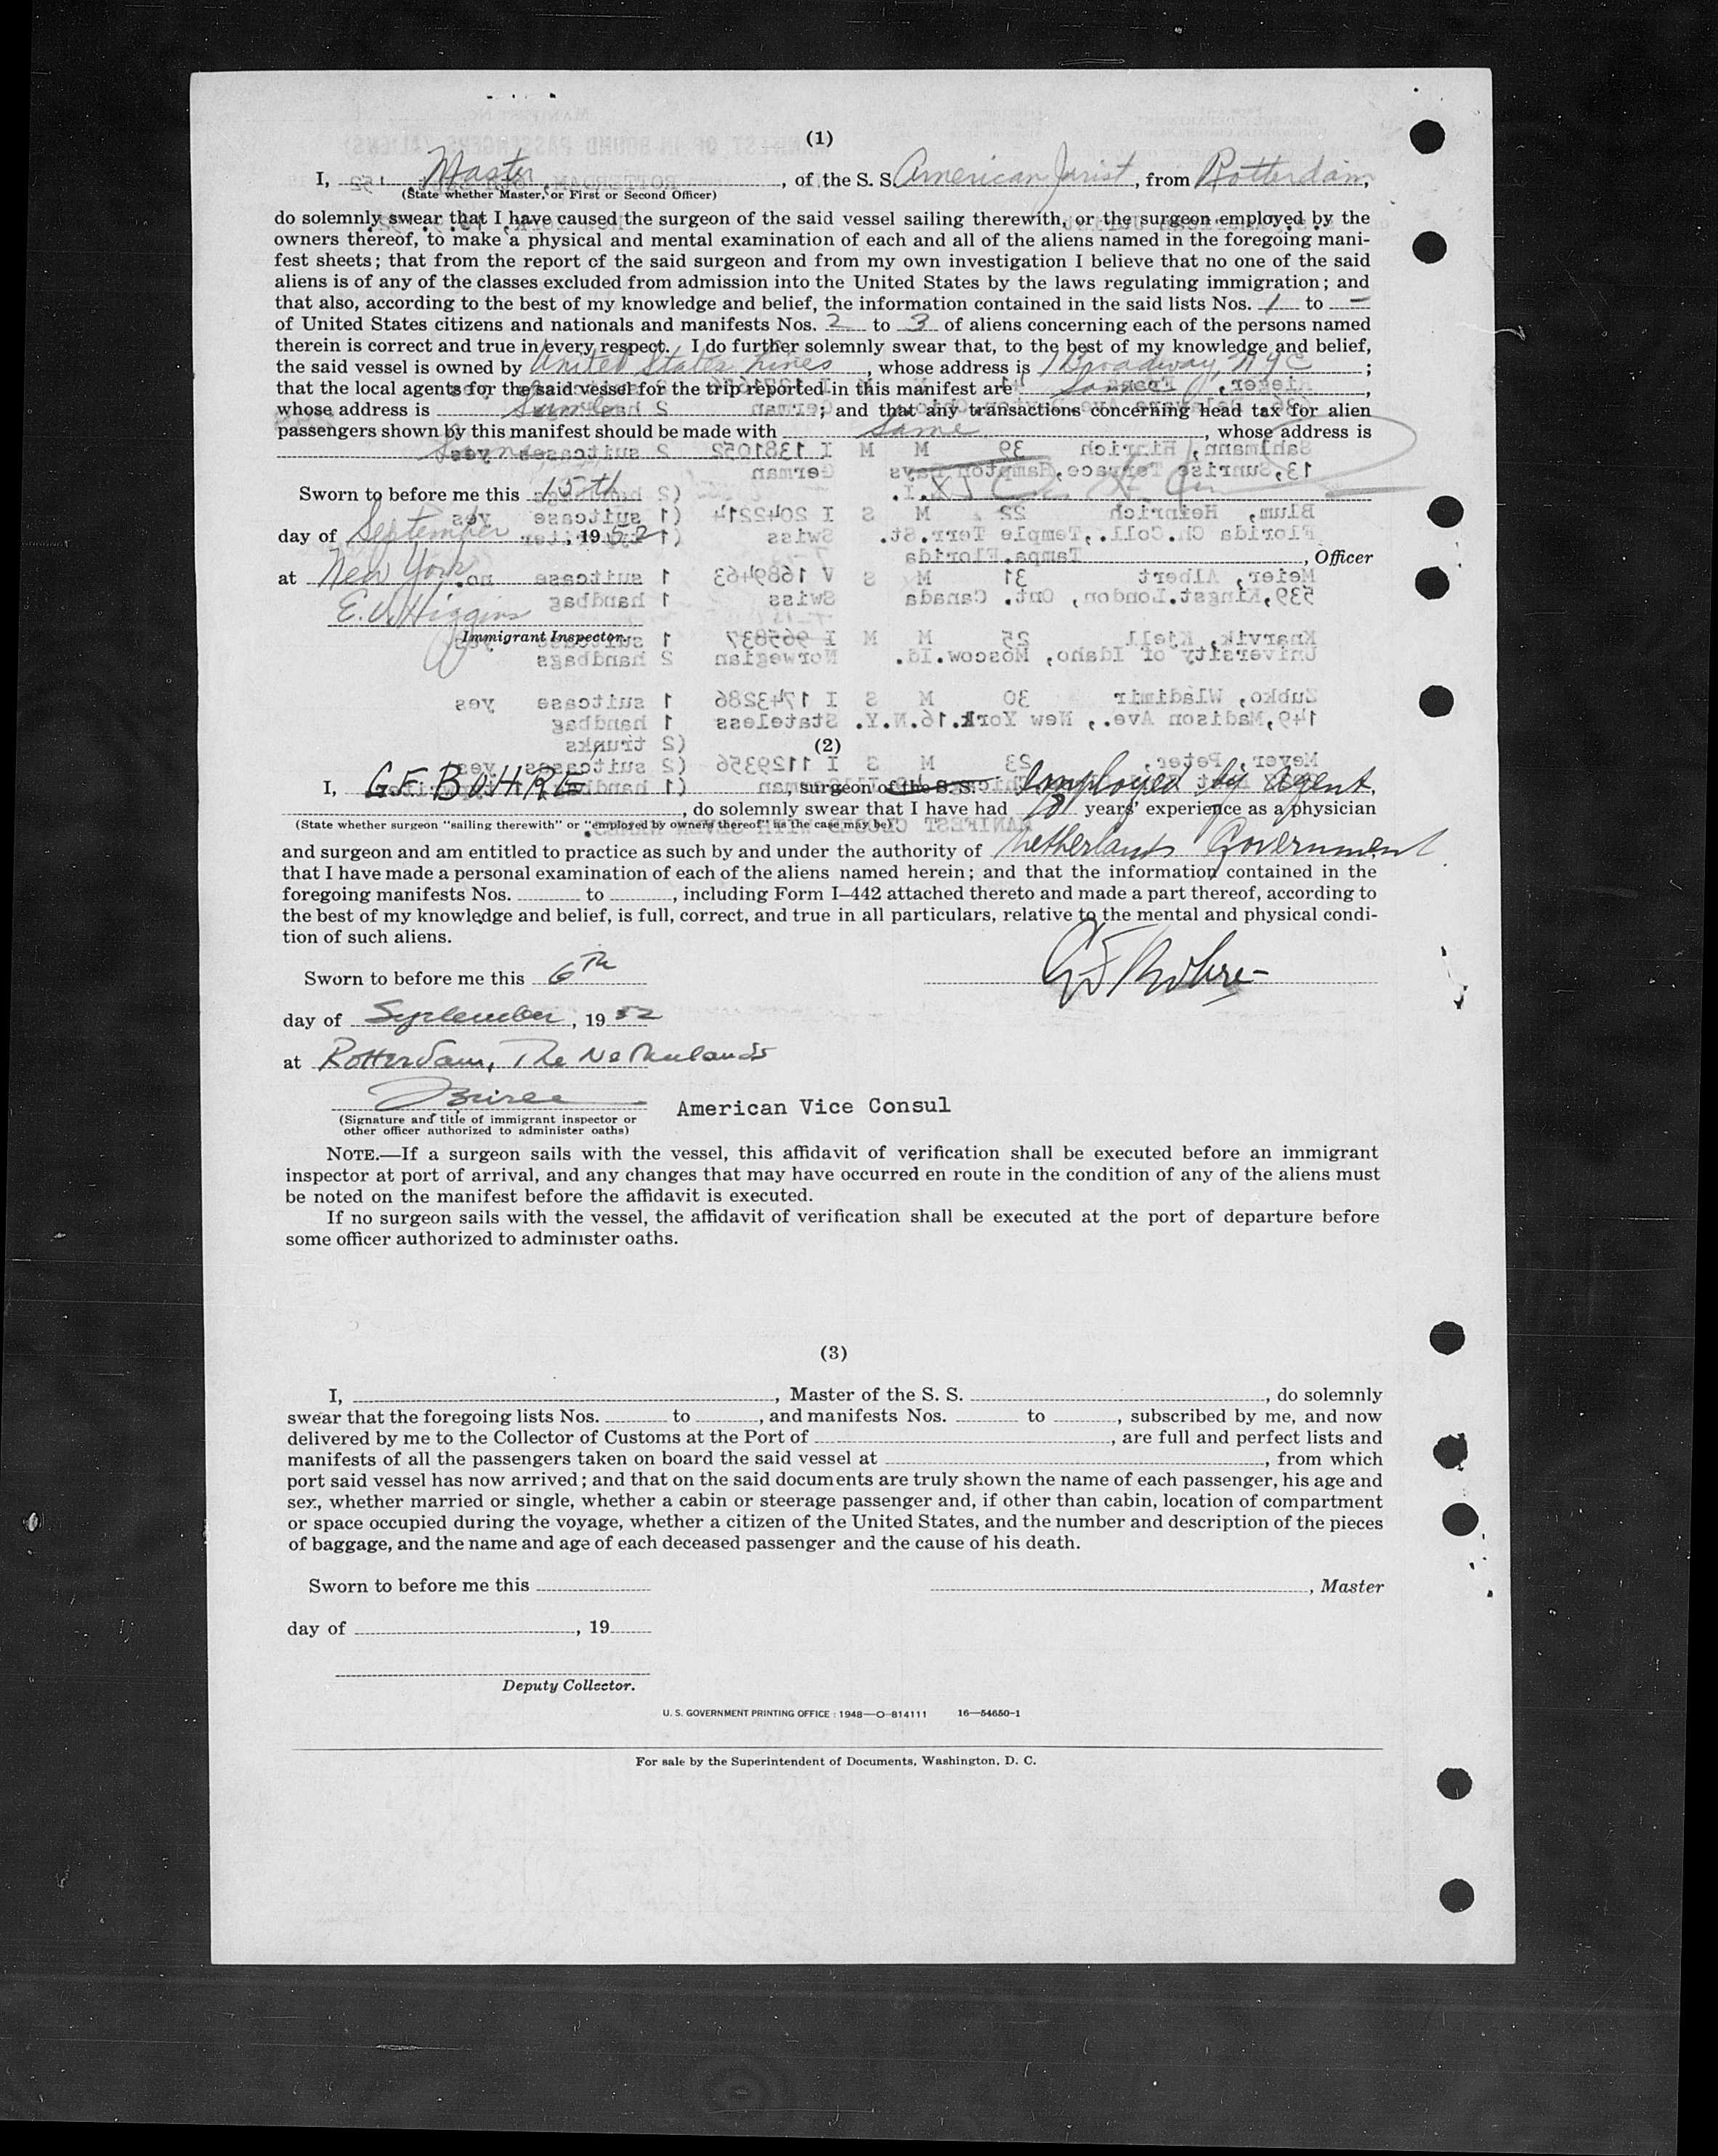 (1)
I, Master, of the S. S. American Jurist, from Rotterdam,
(State whether Master, or First or Second Officer)
do solemnly swear that I have caused the surgeon of the said vessel sailing therewith, or the surgeon employed by the
owners thereof, to make a physical and mental examination of each and all of the aliens named in the foregoing mani-
fest sheets; that from the report of the said surgeon and from my own investigation I believe that no one of the said
aliens is of any of the classes excluded from admission into the United States by the laws regulating immigration; and
that also, according to the best of my knowledge and belief, the information contained in the said lists Nos. 1 to —
of United States citizens and nationals and manifests Nos. 2 to 3 of aliens concerning each of the persons named
therein is correct and true in every respect. I do further solemnly swear that, to the best of my knowledge and belief,
the said vessel is owned by United States Lines, whose address is 1 Broadway, NYC;
that the local agents for the said vessel for the trip reported in this manifest are Same,
whose address is Same; and that any transactions concerning head tax for alien
passengers shown by this manifest should be made with Same, whose address is
Same
Sworn to before me this 15th
day of September, 1952
, Officer
at New York
E. V. Higgins
Immigrant Inspector.
(2)
I, G.F. BÖHRE, surgeon of the S. S. Employed by Agent.
, do solemnly swear that I have had years' experience as a physician
(State whether surgeon "sailing therewith" or "employed by owners thereof" as the case may be)
and surgeon and am entitled to practice as such by and under the authority of Netherlands Government
that I have made a personal examination of each of the aliens named herein; and that the information contained in the
foregoing manifests Nos. to , including Form I–442 attached thereto and made a part thereof, according to
the best of my knowledge and belief, is full, correct, and true in all particulars, relative to the mental and physical condi-
tion of such aliens.
Sworn to before me this 6th
GF Böhre
day of September, 1952
at Rotterdam, The Netherlands
American Vice Consul
(Signature and title of immigrant inspector or
other officer authorized to administer oaths)
NOTE.—If a surgeon sails with the vessel, this affidavit of verification shall be executed before an immigrant
inspector at port of arrival, and any changes that may have occurred en route in the condition of any of the aliens must
be noted on the manifest before the affidavit is executed.
If no surgeon sails with the vessel, the affidavit of verification shall be executed at the port of departure before
some officer authorized to administer oaths.
(3)
I, , Master of the S. S. , do solemnly
swear that the foregoing lists Nos. to , and manifests Nos. to , subscribed by me, and now
delivered by me to the Collector of Customs at the Port of , are full and perfect lists and
manifests of all the passengers taken on board the said vessel at , from which
port said vessel has now arrived; and that on the said documents are truly shown the name of each passenger, his age and
sex, whether married or single, whether a cabin or steerage passenger and, if other than cabin, location of compartment
or space occupied during the voyage, whether a citizen of the United States, and the number and description of the pieces
of baggage, and the name and age of each deceased passenger and the cause of his death.
Sworn to before me this
, Master
day of , 19
Deputy Collector.
U. S. GOVERNMENT PRINTING OFFICE : 1948—O–814111 16—54650-1
For sale by the Superintendent of Documents, Washington, D. C.